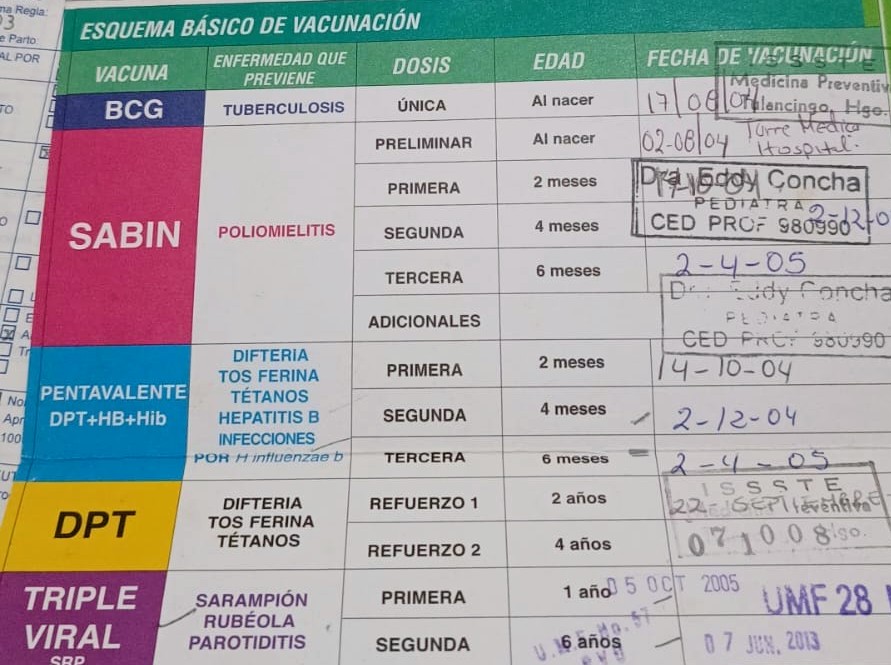 na Regia:
03
e Parto
AL POR
ESQUEMA BÁSICO DE VACUNACIÓN
VACUNA ENFERMEDAD QUE PREVIENE DOSIS EDAD FECHA DE VACUNACIÓN
ISSSTE
Medicina Preventiv
Tulancingo, Hgo.
BCG TUBERCULOSIS ÚNICA Al nacer 17/08/04
SABIN POLIOMIELITIS
PRELIMINAR Al nacer 02-08/04 Torre Medica Hospital.
PRIMERA 2 meses
Dra. Eddy Concha
PEDIATRA
CED PROF 980990
SEGUNDA 4 meses 2-12-0
TERCERA 6 meses 2-4-05
ADICIONALES
Dra. Eddy Concha
PEDIATRA
CED PROF 980990
PENTAVALENTE
DPT+HB+Hib
DIFTERIA
TOS FERINA
TÉTANOS
HEPATITIS B
INFECCIONES
POR H influenzae b
PRIMERA 2 meses 14-10-04
SEGUNDA 4 meses 2-12-04
TERCERA 6 meses 2-4-05
DPT
DIFTERIA
TOS FERINA
TÉTANOS
ISSSTE
REFUERZO 1 2 años 22-SEPTIEMBRE
REFUERZO 2 4 años 071008
TRIPLE
VIRAL
SRP
SARAMPIÓN
RUBÉOLA
PAROTIDITIS
PRIMERA 1 año 05 OCT 2005 UMF 28
SEGUNDA 6 años 07 JUN. 2013
No
Apr
100